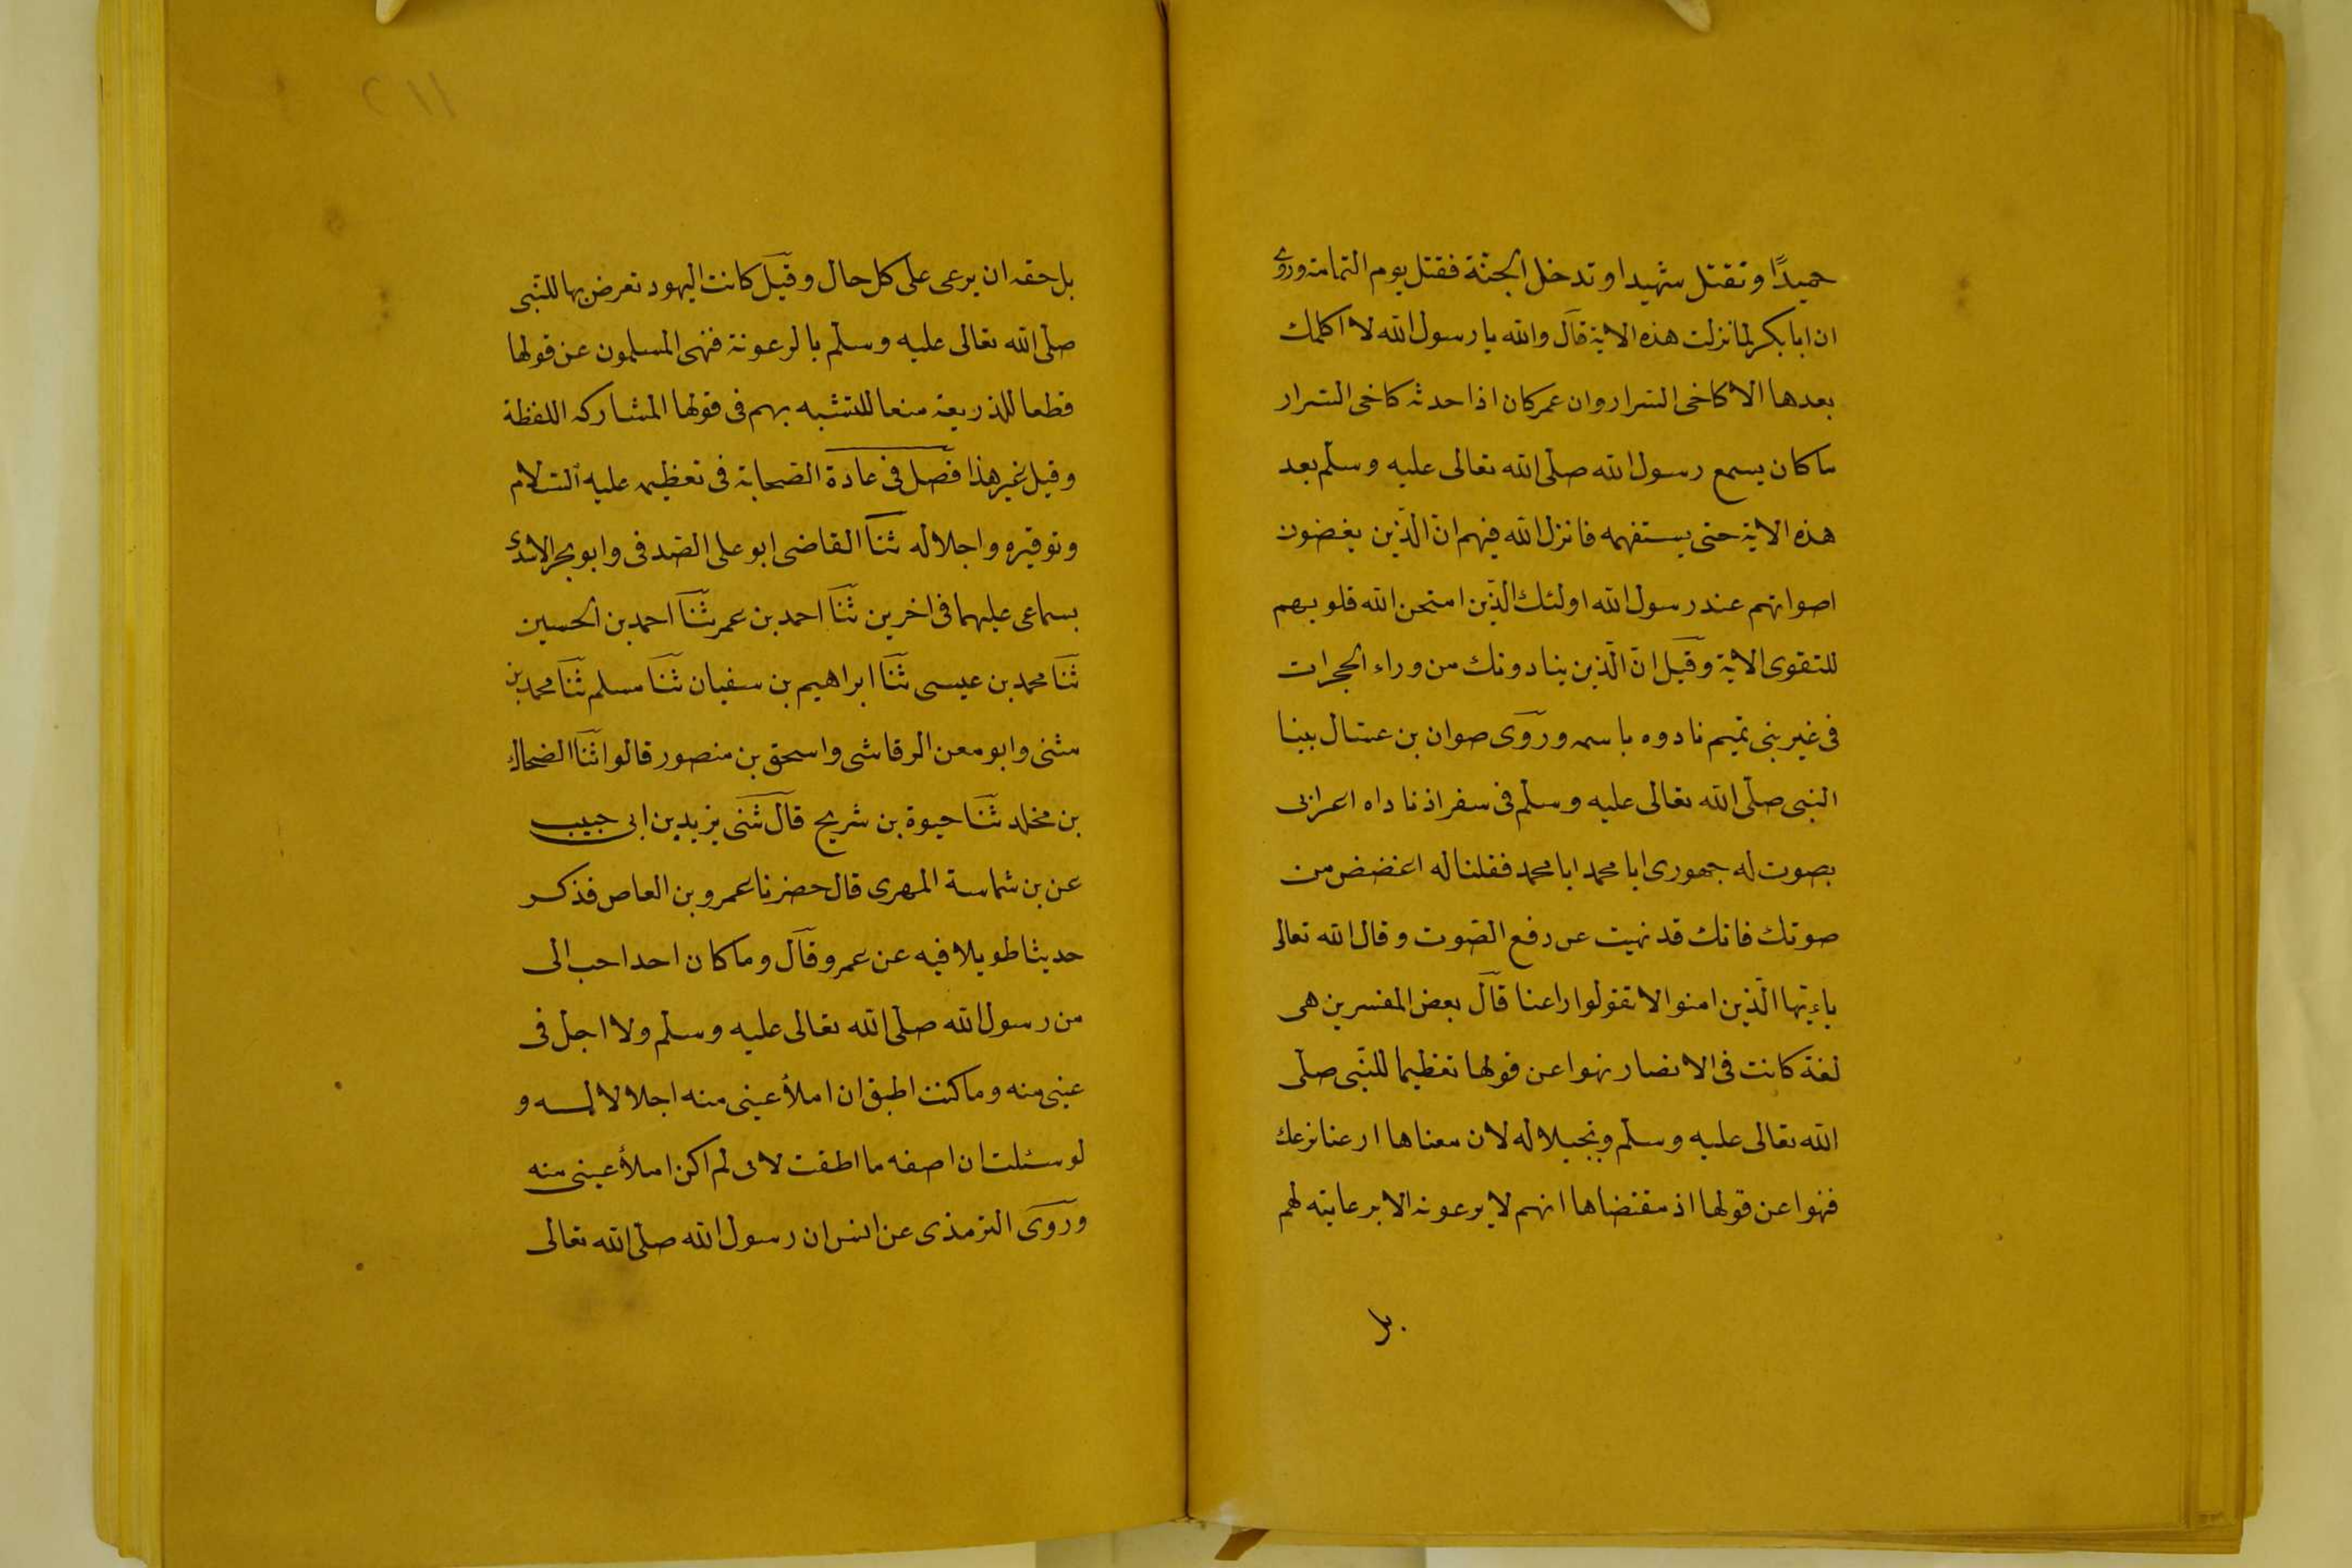 حميدًا وتقتل شهيدا وتدخل الجنّة فقتل يوم اليمامة وروى
ان ابا بكر لما نزلت هذه الاية قال والله يا رسول الله لا اكلمك
بعدها الا كاخى السرار وان عمر كان اذا حدثه كاخى السرار
ما كان يسمع رسول الله صلّى الله تعالى عليه وسلّم بعد
هذه الاية حتى يستفهمه فانزل الله فيهم انّ الّذين يغضون
اصواتهم عند رسول الله اولئك الّذين امتحن الله قلوبهم
للتقوى الاية وقيل انّ الّذين ينادونك من وراء الحجرات
فى غير بنى تميم نادوه باسمه وروى صوان بن عسال بينا
النبى صلّى الله تعالى عليه وسلّم فى سفر اذ ناداه اعرابى
بصوت له جهورى ايا محمد ايا محمد فقلنا له اغضض من
صوتك فانك قد نهيت عن رفع الصّوت وقال الله تعالى
ياءيّها الّذين امنوا لا تقولوا راعنا قال بعض المفسرين هى
لغة كانت فى الانصار نهوا عن قولها تعظيما للنّبى صلّى
الله تعالى عليه وسلّم وتبجيلا له لان معناها ارعنا نرعك
فنهوا عن قولها اذ مقتضاها انهم لا يرعونه الا برعايته لهم
بل
١١٢
بل حقه ان يرعى على كل حال وقيل كانت اليهود تعرض بها للنّبى
صلّى الله تعالى عليه وسلّم بالرعونة فنهى المسلمون عن قولها
قطعا للذريعة منعا للتشبه بهم فى قولها المشاركه اللفظة
وقيل غير هذا فصل فى عادة الصّحابة فى تعظيمه عليه السّلام
وتوقيره واجلاله ثنا القاضى ابو على الصّدفى وابو بحر الاسدى
بسماعى عليهما فى اخرين ثنا احمد بن عمر ثنا احمد بن الحسين
ثنا محمد بن عيسى ثنا ابراهيم بن سفيان ثنا مسلم ثنا محمد بن
مثنى وابو معن الرقاشى واسحق بن منصور قالوا ثنا الضحاك
بن مخلد ثنا حيوة بن شريح قال ثنى يزيد بن ابى حبيب
عن بن شماسة المهرى قال حضرنا عمرو بن العاص فذكر
حديثا طويلا فيه عن عمرو قال وما كان احد احب الى
من رسول الله صلّى الله تعالى عليه وسلّم ولا اجل فى
عينى منه وما كنت اطيق ان املأ عينى منه اجلالا له و
لو سئلت ان اصفه ما اطقت لانى لم اكن املأ عينى منه
وروى الترمذى عن انس ان رسول الله صلّى الله تعالى